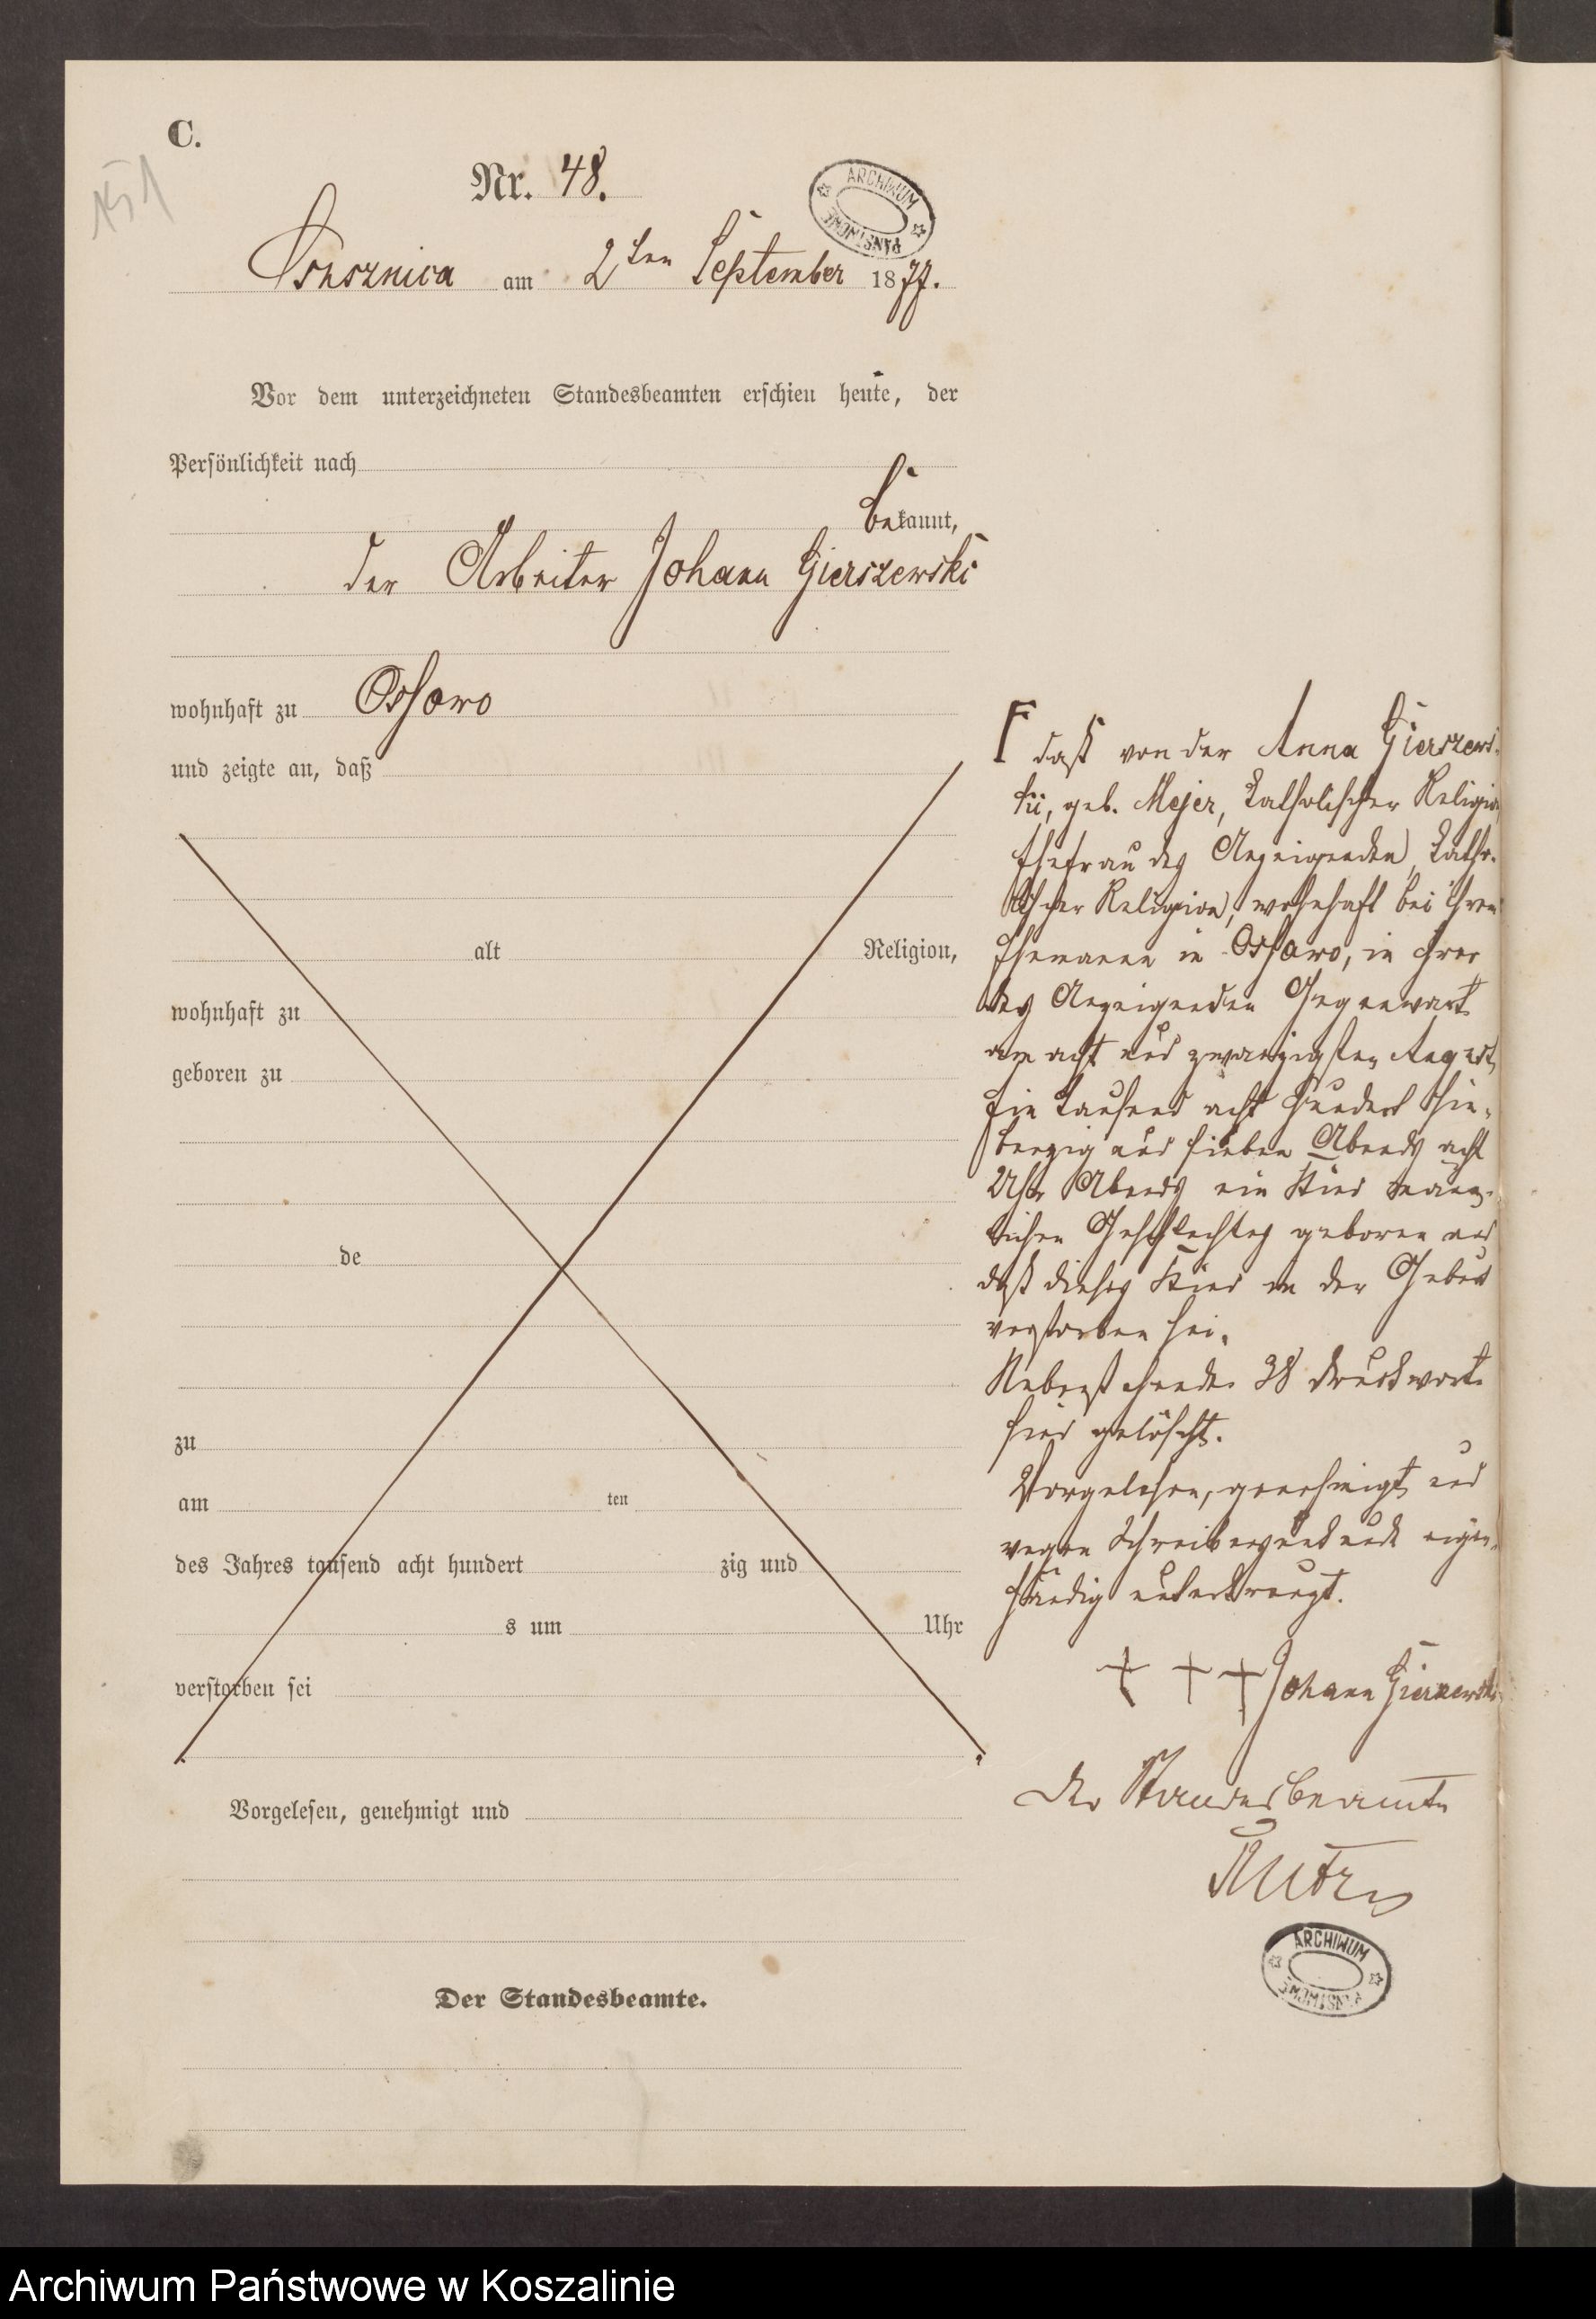 C.
151
Nr. 48.
ARCHIWUM PAŃSTWOWE
am 2ten September 1877.
Vor dem unterzeichneten Standesbeamten erschien heute, der
Persönlichkeit nach
bekannt,
der Arbeiter Johann Gierszewski
wohnhaft zu Ossowo
und zeigte an, daß
alt Religion,
wohnhaft zu
geboren zu
de
zu
am ten
des Jahres tausend acht hundert zig und
s um Uhr
verstorben sei
Vorgelesen, genehmigt und
Der Standesbeamte.
F daß von der Anna Gierszews-
ki, geb. Mejer, katholischer Religion
Ehefrau des Anzeigenden, katho-
lischer Religion, wohnhaft bei ihrem
Ehemanne in Ossowo, in
des Anzeigenden Gegenwart
am acht und zwanzigsten August
Ein tausend acht hundert sie-
benzig und sieben Abends acht
Uhr Abends ein Kind männ-
lichen Geschlechtes geboren und
daß dieses Kind in der Geburt
verstorben sei.
Nebenstehende 38 Druckworte
sind gelöscht.
Vorgelesen, genehmigt und
wegen eigen-
händig unterkreuzt.
+ + + Johann Gierszewski
Der Standesbeamte
ARCHIWUM PAŃSTWOWE
Archiwum Państwowe w Koszalinie